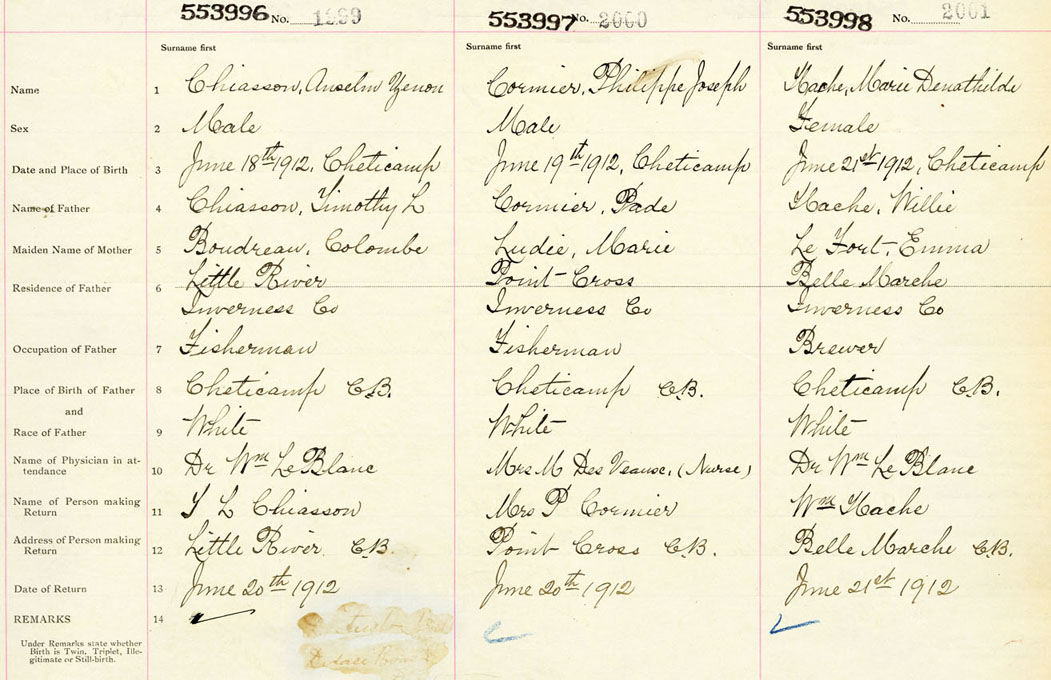 553996 No. 1999 553997 No. 2000 553998 No. 2001
Surname first Surname first Surname first
Name 1 Chiasson, Anselm Zenon Cormier, Philippe Joseph Hache, Marie Denathilde
Sex 2 Male Male Female
Date and Place of Birth 3 June 18th 1912, Cheticamp June 19th 1912, Cheticamp June 21st 1912, Cheticamp
Name of Father 4 Chiasson, Timothy L Cormier, Pade Hache, Willie
Maiden Name of Mother 5 Boudreau, Colombe Ludie, Marie Le Fort, Emma
Residence of Father 6 Little River Point Cross Belle Marche
Inverness Co Inverness Co Inverness Co
Occupation of Father 7 Fisherman Fisherman Brewer
Place of Birth of Father 8 Cheticamp C.B. Cheticamp C.B. Cheticamp C.B.
and
Race of Father 9 White White White
Name of Physician in at-
tendance 10 Dr Wm LeBlanc Mrs M Des Veause, (Nurse) Dr Wm LeBlanc
Name of Person making
Return 11 T L Chiasson Mrs P Cormier Wm Hache
Address of Person making
Return 12 Little River C.B. Point Cross C.B. Belle Marche C.B.
Date of Return 13 June 20th 1912 June 20th 1912 June 21st 1912
REMARKS 14
Under Remarks state whether
Birth is Twin, Triplet, Ille-
gitimate or Still-birth.